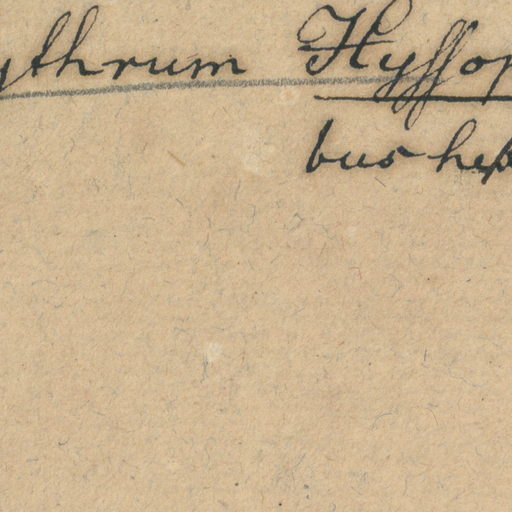 ythrum Hyssop
bus hep